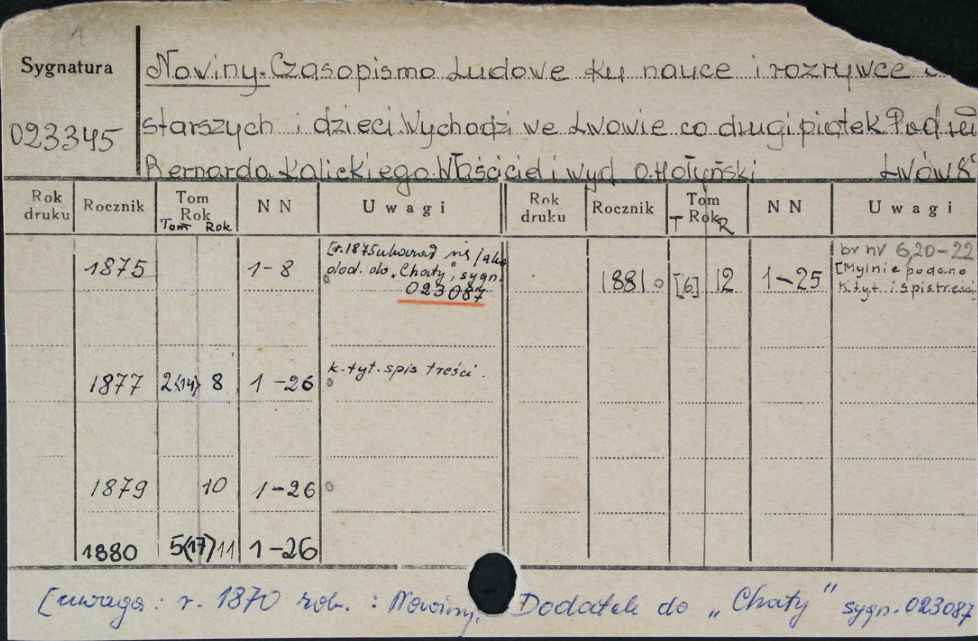 1
Sygnatura
023345
Nowiny. Czasopismo Ludowe ku nauce i rozrywce
starszych i dzieci. Wychodzi we Lwowie co drugi piątek Pod
Bernarda Kalickiego. Właściciel i wyd O. Hołyński Lwów
Rok druku Rocznik Tom Rok N N Uwagi Rok druku Rocznik Tom Rok N N Uwagi
Tom Rok T R
1875 1-8
[r. 1875 się jako
dod. do "Chaty", sygn.
023087
1881 [6] 12 1-25
br nr 6,20-22
[Mylnie podano
k. tyt. i spis treści
1877 2(14) 8 1-26 k. tyt. spis treści.
1879 10 1-26
1880 5(17) 11 1-26
[uwaga: r. 1870 zob.: Nowiny. Dodatek do "Chaty" sygn. 023087